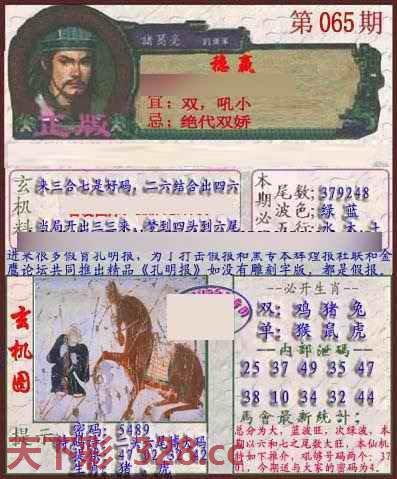 第065期
諸葛亮
稳赢
宜：双，吼小
忌：绝代双娇
正版
玄机料
来三合七是好码，二六结合出四六
当局开出三三来，梦到四头到六尾
本期必
尾数:379248
波色:绿 蓝
五行:水 木 土
近来很多假冒孔明报，为了打击假报和黑专本辉煌报社联和金
鹰论坛共同推出精品《孔明报》如没有雕刻字版，都是假报。
玄机图
--必开生肖--
双: 鸡 猪 兔
单: 猴 鼠 虎
--内部泄码--
25 37 49 35 47
38 10 34 32 44
馬會最新統计:
总分为大，蓝波旺，次绿波，本
期以六和七之尾数大旺，本仙机
纤如下推介，吼够号码两个：37
01，今期追与大家的密码为4.
提示
密码: 5489
天下彩 328.cc